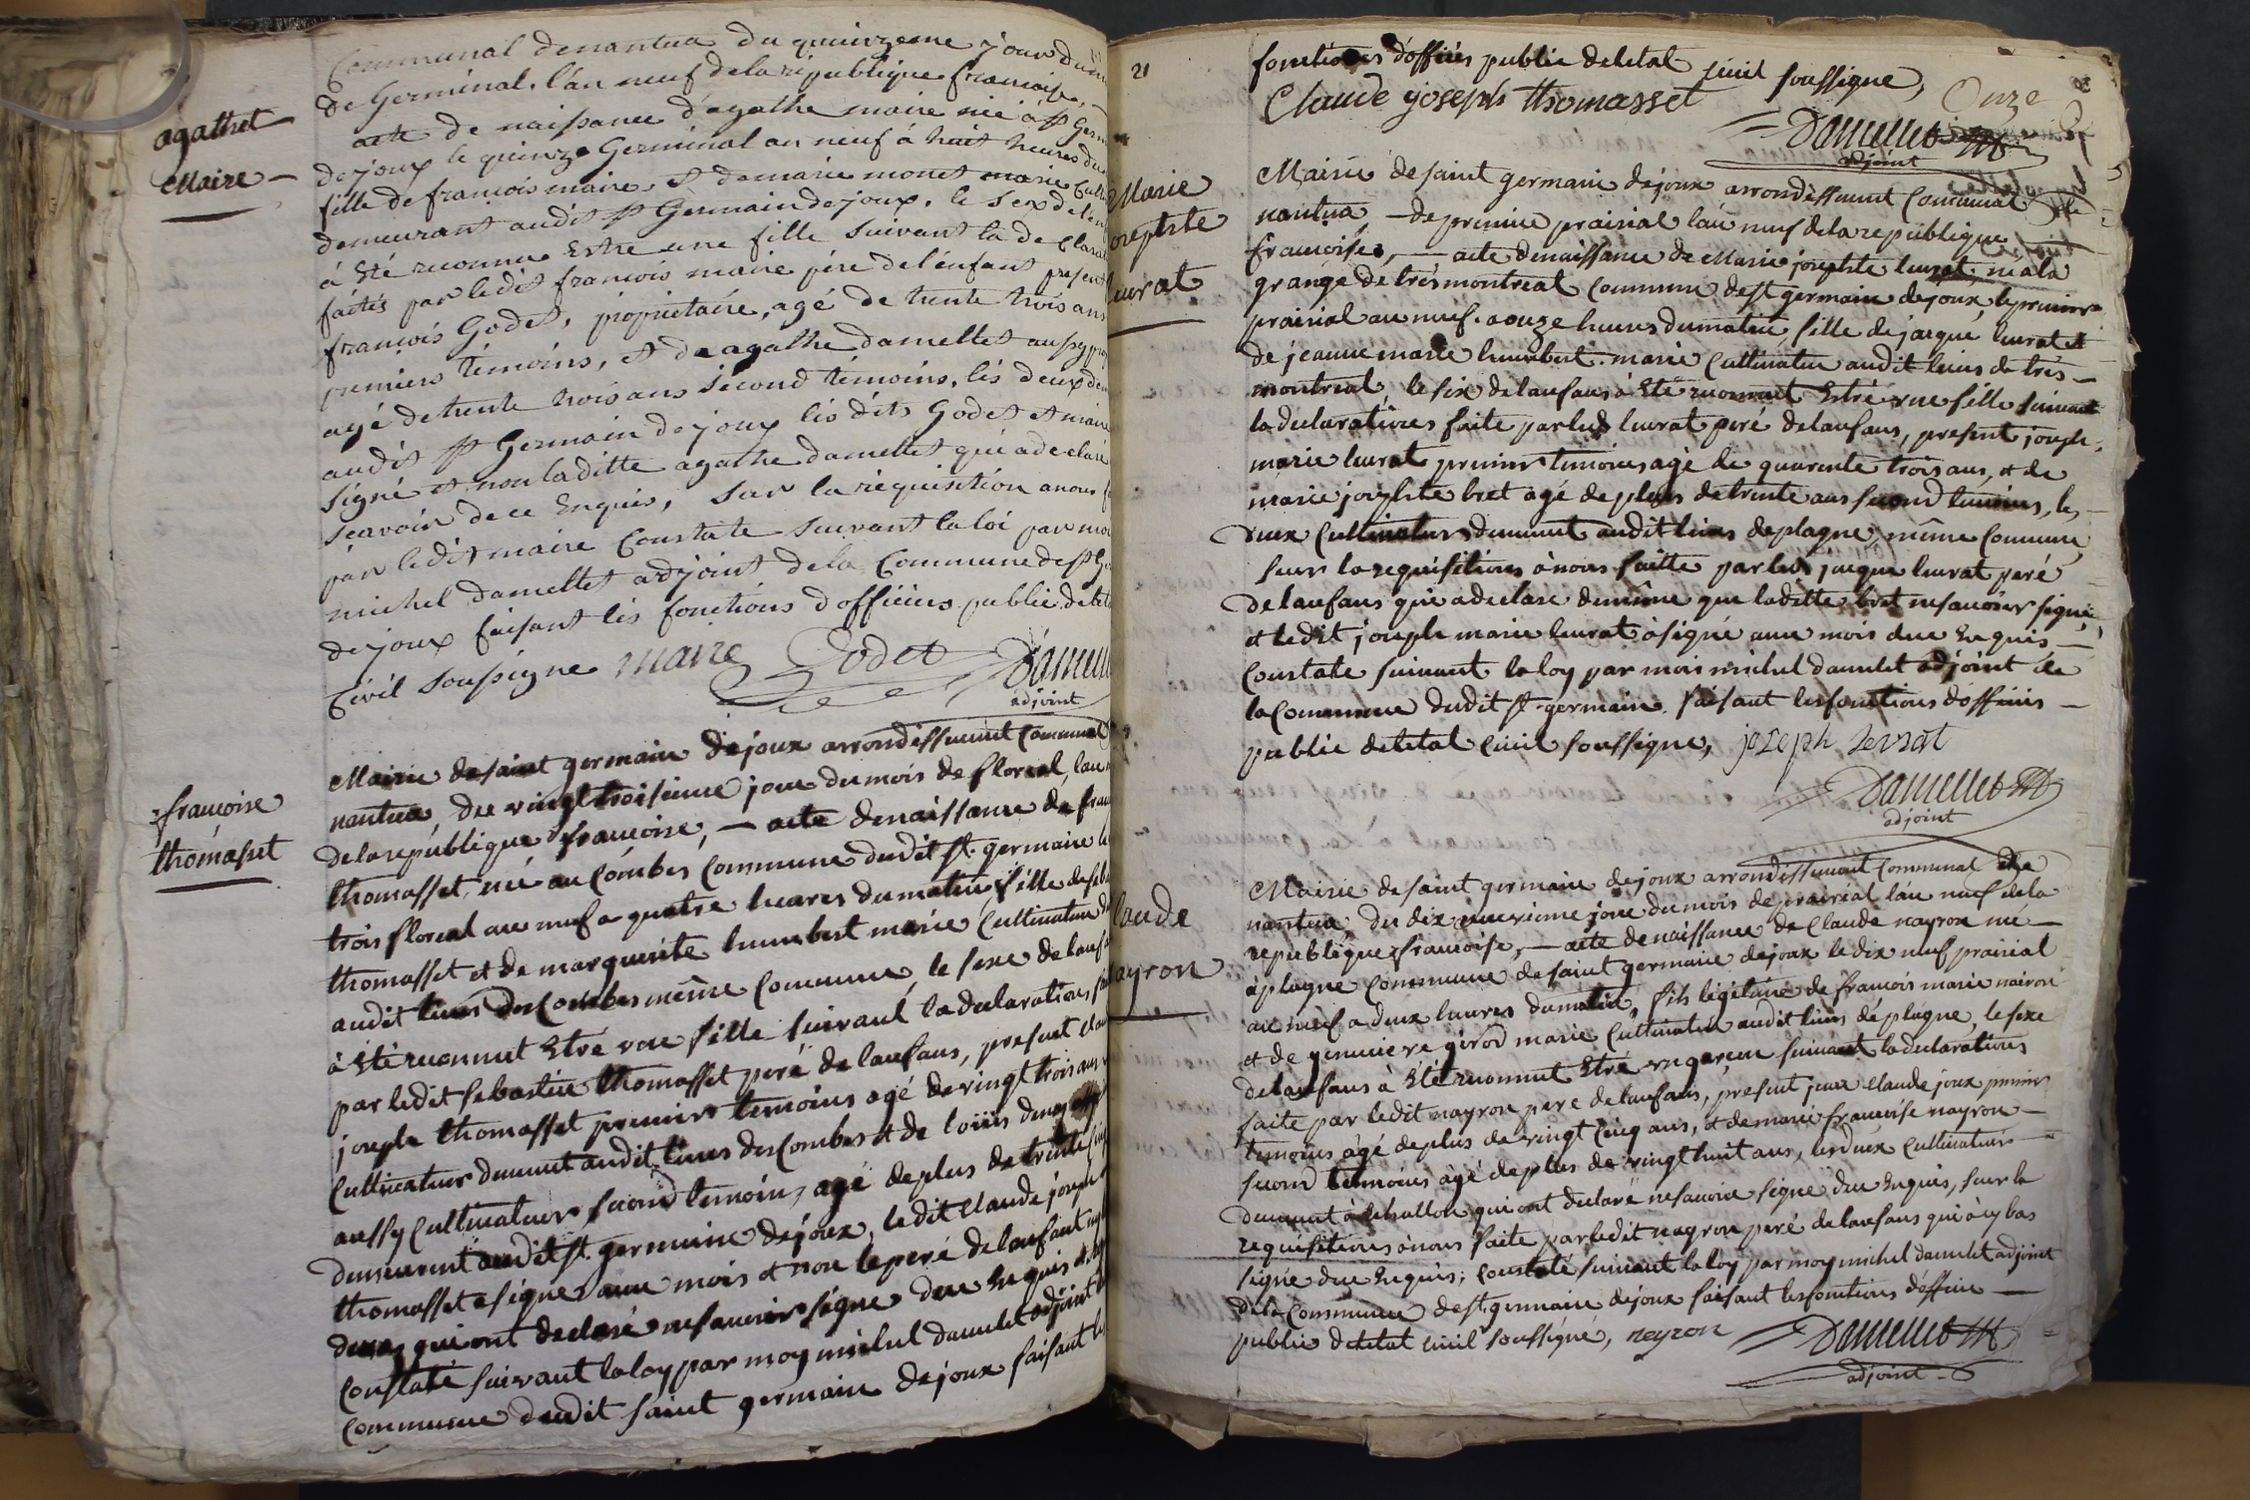 Communal denantua du quinzeme jour du
de Germinal, l'an neuf dela république francoise,
agathet
Maire
acte de naissance d'agathe maire née á st Germ
dejoux le quinze Germinal an neuf á huit heures du
fille de francois maire, et demarie monet marié Cult
demeurant audit st Germain dejoux, le sex delen
à été reconnu Estre une fille suivant la de Clarat
faites par ledit francois maire pére del'enfant present
francois Godet, propriétaire, agé de trente trois ans
premiers témoins, et de agathe damellet aussy prop
agé detrente trois ans sécond témoins, lés deux dem
audit st Germain dejoux lés dits Godet et maire
signé et non laditte agathe damellet qui a declaré
scavoir de ce Enquis, sur la réquisition anous f
par ledit maire Constate suivant la loi par moi
michel damellet adjoint dela Commune de st Ge
dejoux faisant lés fonctions d'officiers public delet
Civil soussigne maire Godet Damell
adjoint
françoise
thomasset
Mairie de saint germain dejoux arrondissement Communal
nantua, du vingt troisieme jour du mois de floreal, lan
delarepublique francoise, — acte denaissance de fran
thomasset, née au Combes Commune dudit st. germain le
trois floreal an neuf a quatre heures du matin, fille de seba
thomasset et de marguerite humbert marié Cultivateur d
audit lieus des Combes même Commune, le sexe de lanf
à été reconnut Estre une fille suivant la declarations fa
par ledit sebastien thomasset peré de lanfans, present clau
joseph thomasset premier temoins agé de vingt trois ans
Cultivateur demeurt audit lieus des Combes et de
aussy Cultivateur second temoin, agé de plus de trente
demeurent audit st. germain dejoux, ledit Claude joseph
thomasset a signé avec mois et non le peré de lanfant
qui ont declaré nesavoir signe de ce Enquis
Constaté suivant la loy par moy michel damelet adjoint
Commune dudit saint germain dejoux faisant les
21
fonctions d'officiés public deletat Civil soussigne,
Onze
Claude joseph thomasset
Damellet
adjoint
Marie
josephte
leurat
Mairie de saint germain dejoux arrondissement Communal de
nantua — de premier prairial lan neuf dela republique
francoises, — acte denaissance de Marie josephte leurat, née à la
grange de trés montreal Commune de st germain dejoux, le premier
prairial an neuf. a onze heures du matin, fille de jacque leurat et
de jeanne marie humbert. marié Cultivateur audit lieus de trés —
montreal, le sexe de lanfans à Eté reconnut Estré une fille suivant
la declarations faite par ledt leurat peré de lanfans, present joseph
marie leurat premier temoins agé de quarente trois ans, et de
marie josephte bret agé de plus de trente ans second temoins, les
deux Cultivateurs demeurt audit lieus de plagne, même Commune
sur la requisitions à nous faitte par ledt jacque leurat peré
de lanfans qui a declaré demême que laditte bret nesavoier signé,
et ledit joseph marie leurat à signé avec mois de ce Enquis —
Constate suivant la loy par mois michel damelet adjoint de
la Commune dudit st. germain. faisant les fonctions d'officiés —
public de letat Civil soussigne, joseph levrat
Damellet
adjoint
laude
ayron
Mairie de saint germain dejoux arrondissement Communal de
nantua, du dix neuvieme jour du mois de prairial lan neuf dela
republique francoise, — acte de naissance de Claude nayron né —
à plagne Commune de saint germain dejoux le dix neuf prairial
an neuf a deux heures du matin, fils legitime de francois marie nairon
et de genevieve girod marié Cultivateur audit lieus de plagne, le sexe
de lanfans à Eté reconnut Estre un garcon suivant la declarations
faite par ledit nayron pere de lanfans, present jean Claude joux premier
temoins àgé de plus de vingt Cinq ans, et de marie francoise nayron —
second temoins agé de plus de vingt huit ans, les deux Cultivateurs —
demeurt à echallon qui ont declaré nesavoir signe de ce Enquis, sur la
requisitions à nous faite par ledit nayron peré de lanfans qui à cy bas
signé de ce Enquis; Constaté suivant la loy par moy michel damelet adjoint
dela Commune de st. germain dejoux faisant les fonctions d'officié —
public de letat Civil soussigné, neyron Damellet
adjoint